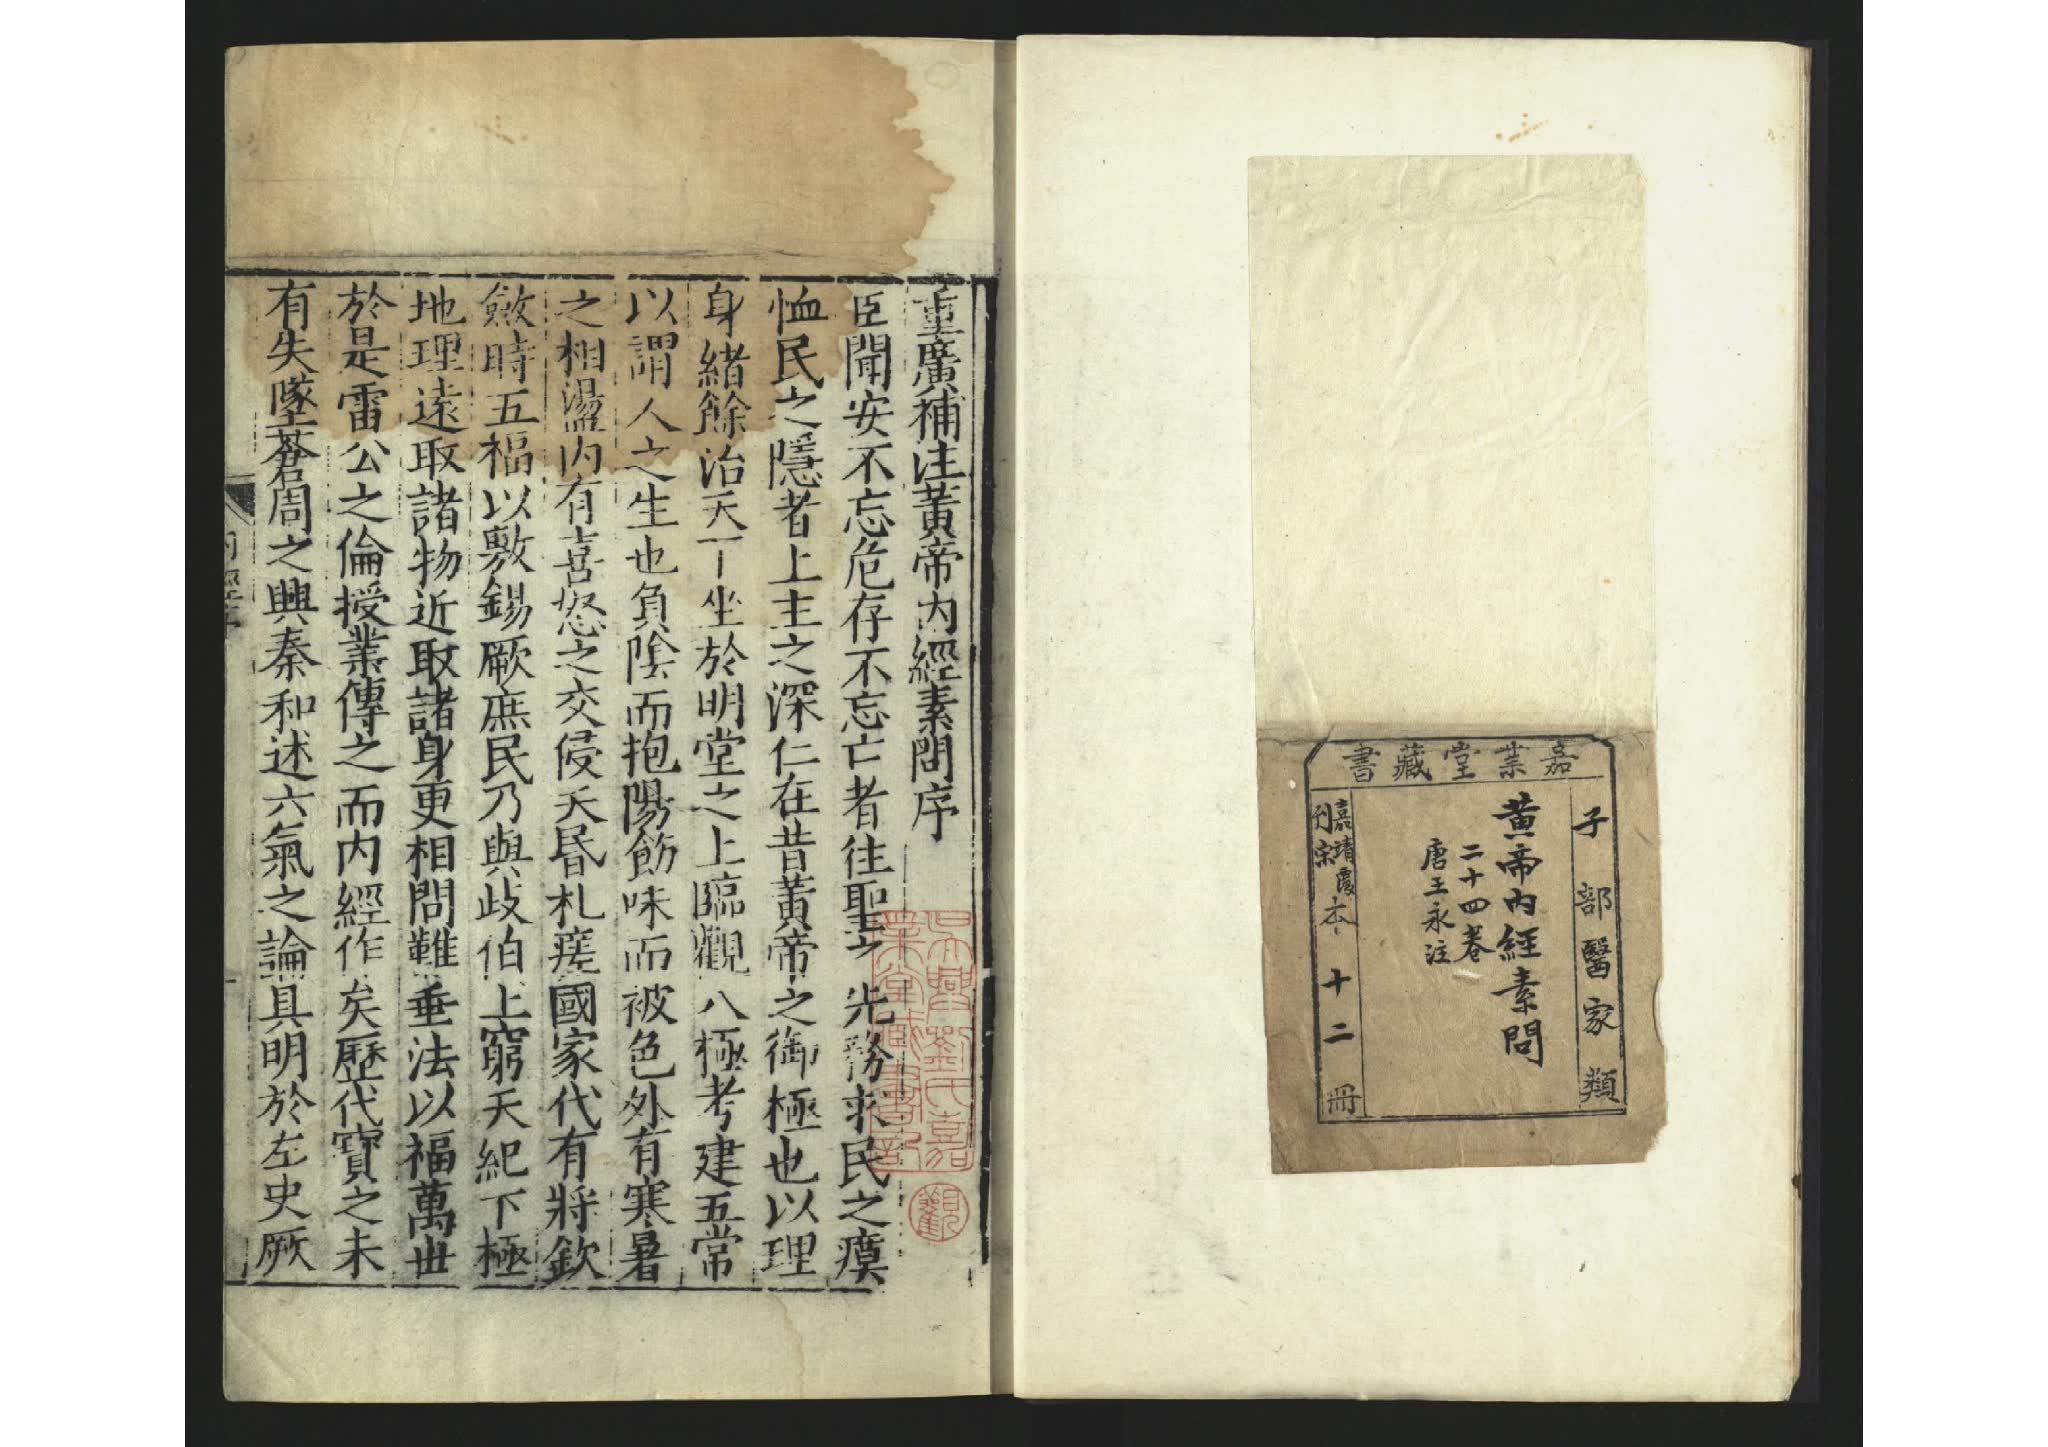 嘉業堂藏書
子部醫家類
黄帝内經素問
二十四卷
唐王氷注
嘉靖覆
刋宋
本十二冊
重廣補注黃帝内經素問序
臣聞安不忘危存不忘亡者往聖之先務求民之瘼
恤民之隱者上主之深仁在昔黃帝之御極也以理
身緒餘治天下坐於明堂之上臨觀八極考建五常
以謂人之生也負陰而抱陽飭味而被色外有寒暑
之相盪内有喜怒之交侵夭昏札瘥國家代有將欽
斂時五福以敷錫厥庶民乃與歧伯上窮天紀下極
地理遠取諸物近取諸身更相問難垂法以福萬世
於是雷公之倫授業傳之而内經作矣歷代寶之未
有失墜蒼周之興秦和述六氣之論具明於左史厥
吳興劉氏嘉
業堂藏書記
觀
内經序